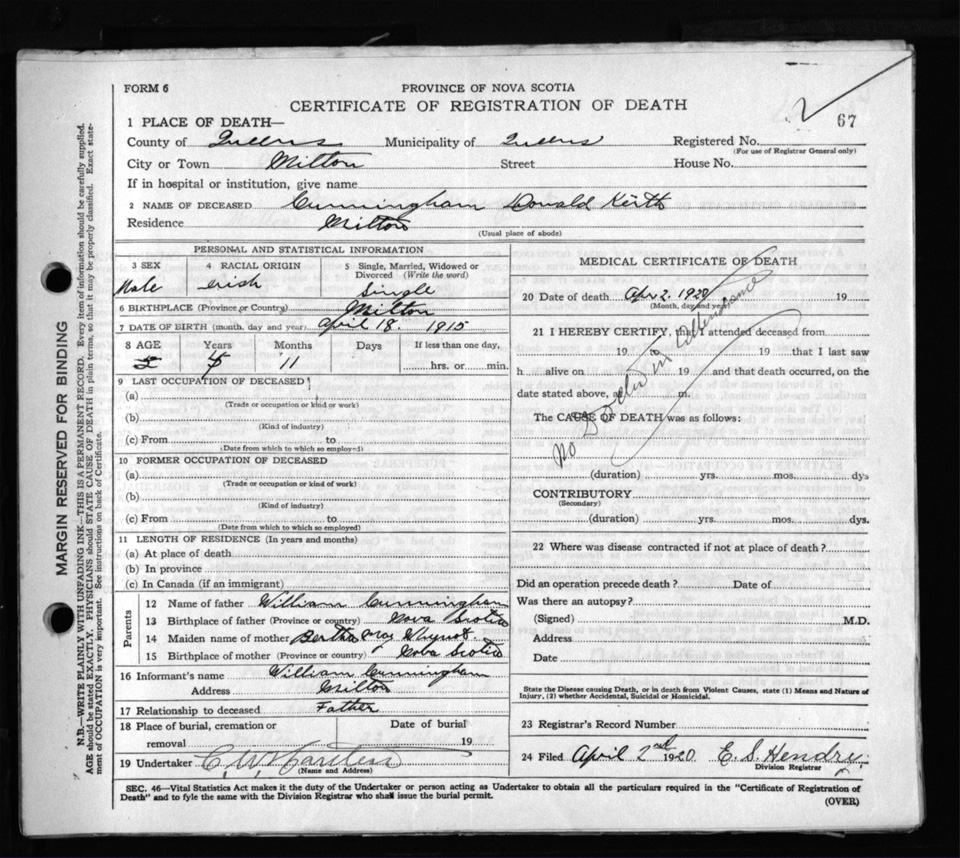 FORM 6
PROVINCE OF NOVA SCOTIA
CERTIFICATE OF REGISTRATION OF DEATH
67
1 PLACE OF DEATH—
County of Queens Municipality of Queens Registered No.
(For use of Registrar General only)
City or Town Milton Street House No.
If in hospital or institution, give name
2 NAME OF DECEASED Cunningham Donald Keith
Residence Milton
(Usual place of abode)
PERSONAL AND STATISTICAL INFORMATION
3 SEX 4 RACIAL ORIGIN 5 Single, Married, Widowed or Divorced (Write the word)
Male Irish Single
6 BIRTHPLACE (Province or Country) Milton
7 DATE OF BIRTH (month, day and year) April 18. 1915
8 AGE Years Months Days If less than one day,
5 4 11 hrs. or min.
9 LAST OCCUPATION OF DECEASED
(a)
(Trade or occupation or kind or work)
(b)
(Kind of industry)
(c) From to
(Date from which to so employed)
10 FORMER OCCUPATION OF DECEASED
(a)
(Trade or occupation or kind of work)
(b)
(Kind of industry)
(c) From to
(Date from which to so employed)
11 LENGTH OF RESIDENCE (In years and months)
(a) At place of death
(b) In province
(c) In Canada (if an immigrant)
Parents
12 Name of father William Cunningham
13 Birthplace of father (Province or country) Nova Scotia
14 Maiden name of mother Bertha May Whynot
15 Birthplace of mother (Province or country) Nova Scotia
16 Informant's name William Cunningham
Address Milton
17 Relationship to deceased Father
18 Place of burial, cremation or Date of burial
removal 19
19 Undertaker C. W.
(Name and Address)
MEDICAL CERTIFICATE OF DEATH
20 Date of death Apr 2. 1920 19
(Month, day and year)
21 I HEREBY CERTIFY, that I attended deceased from
19 to 19 that I last saw
h alive on 19 and that death occurred, on the
date stated above, at m.
The CAUSE OF DEATH was as follows:
No Doctor in Attendance
(duration) yrs. mos. dys
CONTRIBUTORY
(Secondary)
(duration) yrs. mos. dys.
22 Where was disease contracted if not at place of death?
Did an operation precede death? Date of
Was there an autopsy?
(Signed) M.D.
Address
Date
State the Disease causing Death, or in death from Violent Causes, state (1) Means and Nature of
Injury, (2) whether Accidental, Suicidal or Homicidal.
23 Registrar's Record Number
24 Filed April 2nd 1920 E. S. Hendry
Division Registrar
SEC. 46—Vital Statistics Act makes it the duty of the Undertaker or person acting as Undertaker to obtain all the particulars required in the "Certificate of Registration of
Death" and to fyle the same with the Division Registrar who shall issue the burial permit.
(OVER)
MARGIN RESERVED FOR BINDING
N.B.—WRITE PLAINLY WITH UNFADING INK—THIS IS A PERMANENT RECORD. Every item of information should be carefully supplied.
AGE should be stated EXACTLY. PHYSICIANS should STATE CAUSE OF DEATH in plain terms, so that it may be properly classified. Exact state-
ment of OCCUPATION is very important. See instructions on back of Certificate.